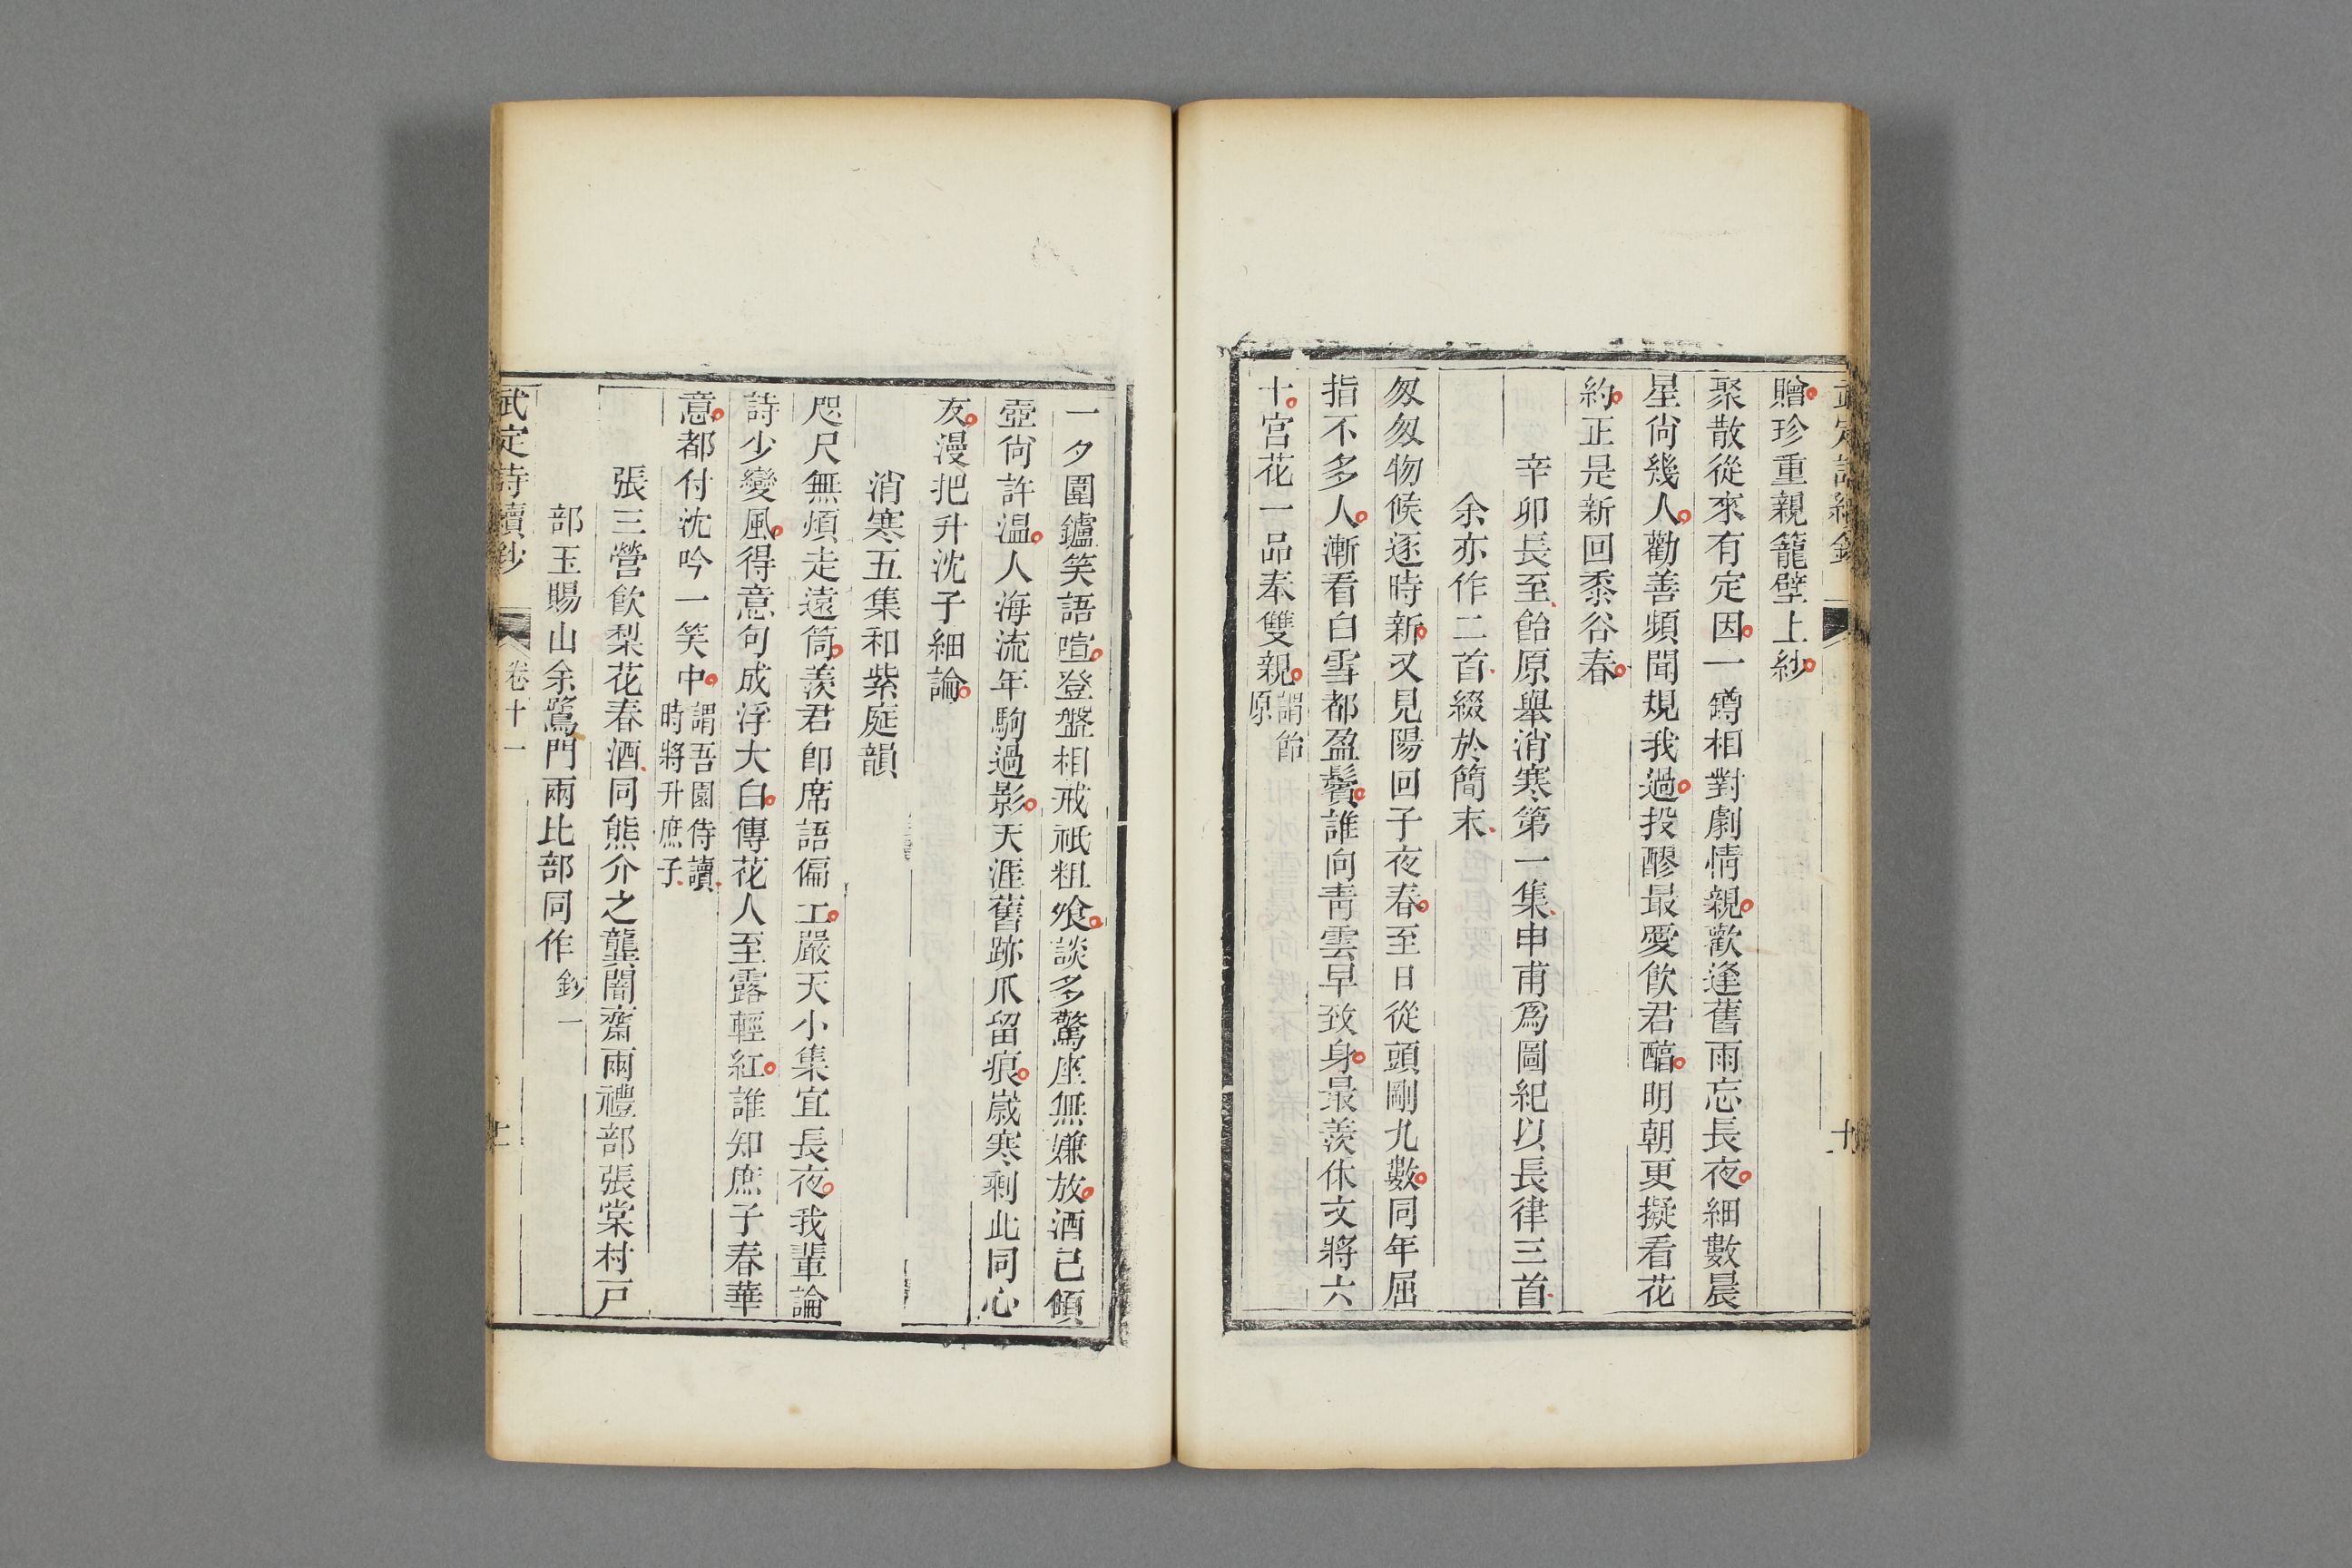 武定詩續鈔
十
贈珍重親籠壁上紗
聚散從來有定因一罇相對劇情親歡逢舊雨忘長夜細數晨
星尙幾人勸善頻聞規我過投醪最愛飲君醕明朝更擬看花
約正是新回黍谷春
辛卯長至飴原舉消寒第一集申甫爲圖紀以長律三首
余亦作二首綴於簡末
匆匆物候逐時新又見陽回子夜春至日從頭剛九數同年屈
指不多人漸看白雪都盈鬢誰向靑雲早致身最羨休文將六
十宮花一品奉雙親謂飴
原
一夕圍鑪笑語喧登盤相戒祇粗飱談多驚座無嫌放酒已傾
壺尙許温人海流年駒過影天涯舊跡爪留痕嵗寒剩此同心
友漫把升沈子細論
消寒五集和紫庭韻
咫尺無煩走遠筒羨君卽席語偏工嚴天小集宜長夜我輩論
詩少變風得意句成浮大白傳花人至露輕紅誰知庶子春華
意都付沈吟一笑中謂吾園侍讀
時將升庶子
張三營飲梨花春酒同熊介之龔闇齋兩禮部張棠村戸
部玉賜山余鷺門兩比部同作鈔一
武定詩續鈔
卷十一
十一